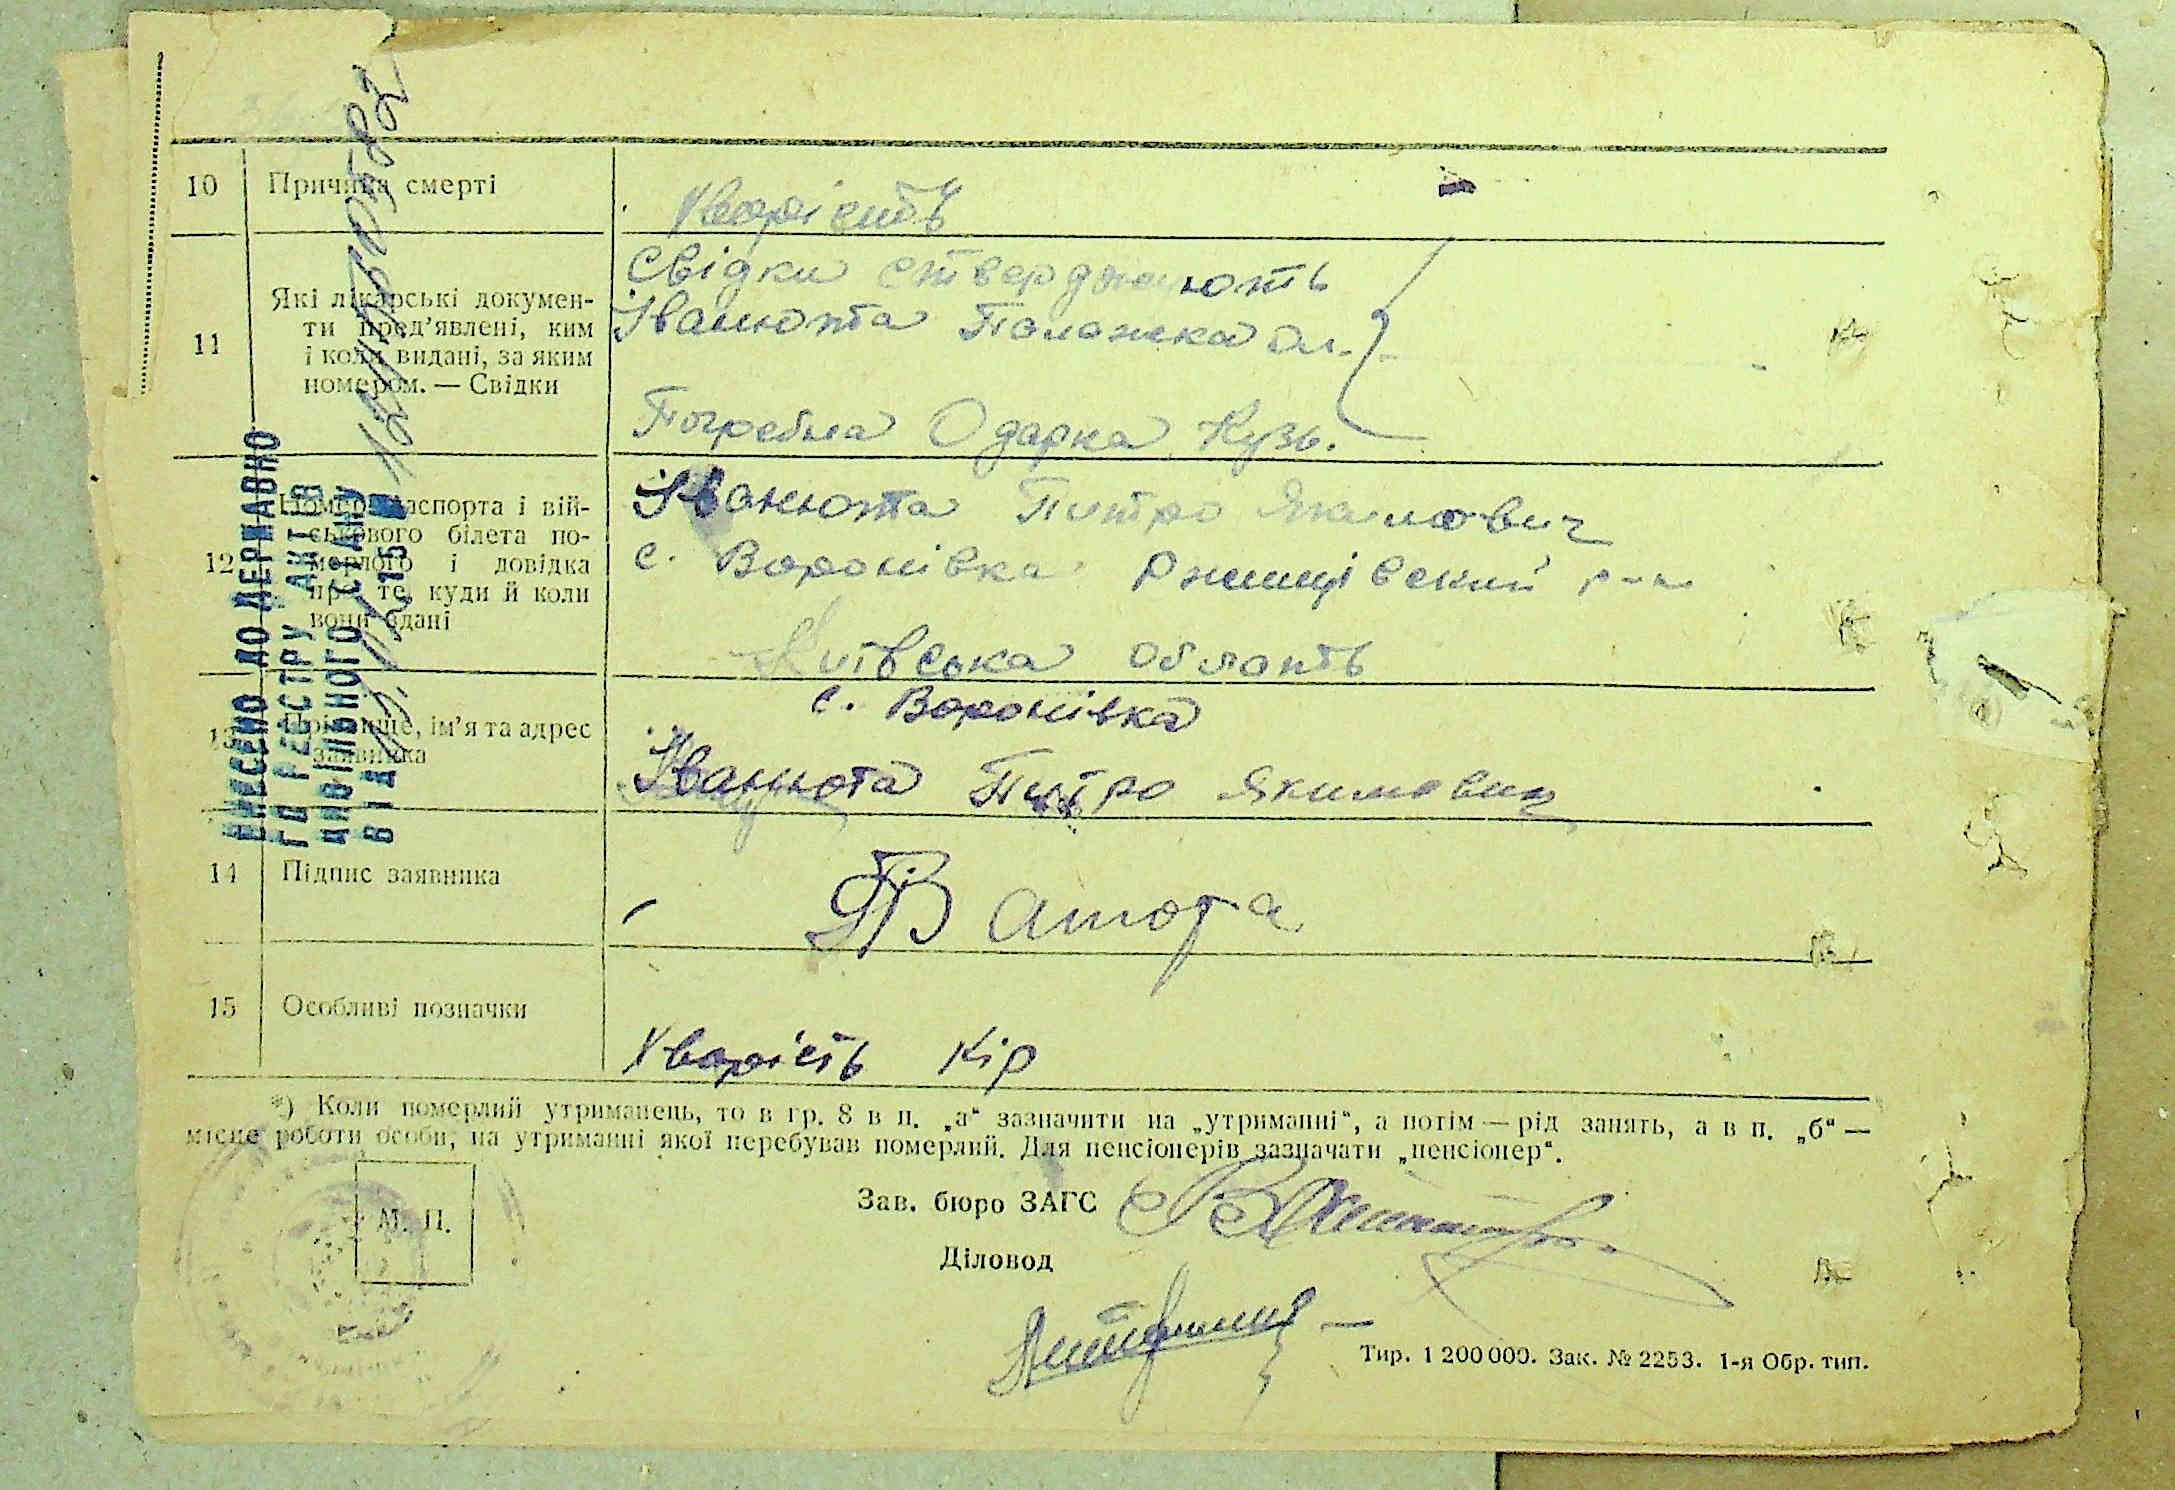 10 Причина смерті
хворість
11 Які лікарські докумен-
ти пред'явлені, ким
і коли видані, за яким
номером. — Свідки
Свідки стверджають
Іванюта Палажка Ол.
Погребна Одарка Кузь.
12 Номер паспорта і вій-
ськового білета по-
мерлого і довідка
про те, куди й коли
вони здані
Іванюта Питро Якимович
с. Воронівка Ржищівский р-н
Київська область
13 Прізвище, ім'я та адрес
заявника
с. Воронівка
Іванюта Питро Якимович
14 Підпис заявника
15 Особливі позначки
хворість кір
*) Коли померлий утриманець, то в гр. 8 в п. „а“ зазначити на „утриманні“, а потім — рід занять, а в п. „б“ —
місце роботи особи, на утриманні якої перебував померлий. Для пенсіонерів зазначати „пенсіонер“.
М. П.
Зав. бюро ЗАГС
Діловод
Тир. 1 200 000. Зак. № 2253. 1-я Обр. тип.
ВНЕСЕНО ДО ДЕРЖАВНО
ГО РЕЄСТРУ АКТІВ
ЦИВІЛЬНОГО СТАНУ
ВІД